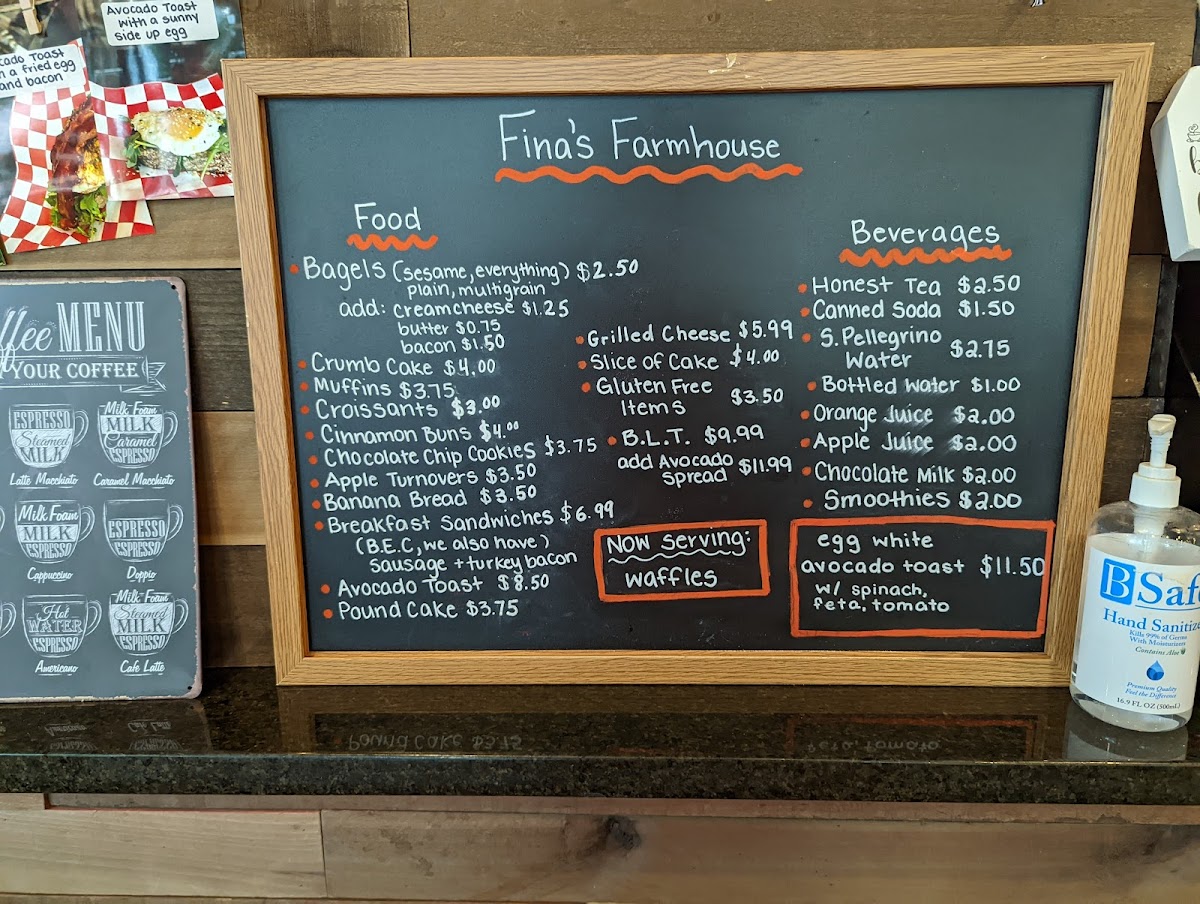 Avocado Toast
with a sunny
side up egg
cado Toast
a fried egg
and bacon
Fina's Farmhouse
Food
Bagels (sesame, everything) $2.50
plain, multigrain
add: creamcheese $1.25
butter $0.75
bacon $1.50
Crumb Cake $4.00
Muffins $3.75
Croissants $3.00
Cinnamon Buns $4.00
Chocolate Chip Cookies $3.75
Apple Turnovers $3.50
Banana Bread $3.50
Breakfast Sandwiches $6.99
(B.E.C, we also have)
sausage + turkey bacon
Avocado Toast $8.50
Pound Cake $3.75
Grilled Cheese $5.99
Slice of Cake $4.00
Gluten Free
Items $3.50
B.L.T. $9.99
add Avocado
Spread $11.99
Now serving:
waffles
Beverages
Honest Tea $2.50
Canned Soda $1.50
S. Pellegrino
Water $2.75
Bottled Water $1.00
Orange Juice $2.00
Apple Juice $2.00
Chocolate Milk $2.00
Smoothies $2.00
egg white
avocado toast $11.50
w/ spinach,
feta, tomato
ffee MENU
YOUR COFFEE
ESPRESSO
Steamed
MILK
Latte Macchiato
Milk Foam
MILK
Caramel
ESPRESSO
Caramel Macchiato
Milk Foam
MILK
ESPRESSO
Cappuccino
ESPRESSO
ESPRESSO
Doppio
Hot
WATER
ESPRESSO
Americano
Milk Foam
Steamed
MILK
ESPRESSO
Cafe Latte
B Safe
Hand Sanitize
Kills 99% of Germs
With Moisturizers
Contains Aloe
Premium Quality
Feel the Difference
16.9 FL OZ (500mL)